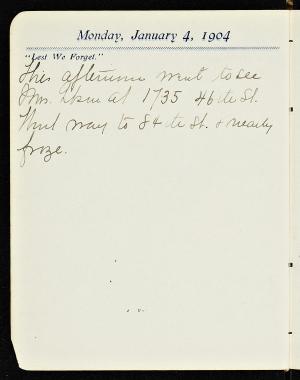 Monday, January 4, 1904
"Lest We Forget."
This afternoon went to see
Mrs. at 1735 46th St.
way to 84th St. & nearly
froze.